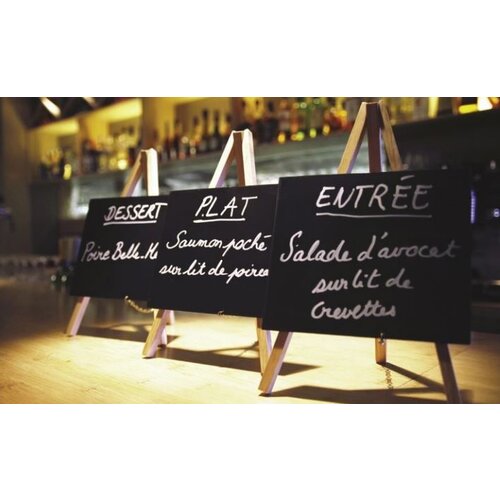 DESSERT
Poire Belle-He
PLAT
Saumon poché
sur lit de poirea
ENTRÉE
Salade d'avocat
sur lit de
crevettes